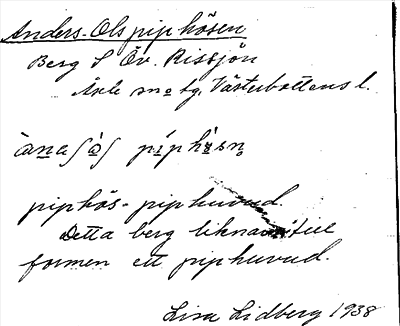 Anders-Ols piphösen
Berg S Öv. Rissjön
Åsele sn o tg. Västerbottens l.
piphös - piphuvud.
Detta berg liknar till
formen ett piphuvud.
Lisa Lidberg 1938